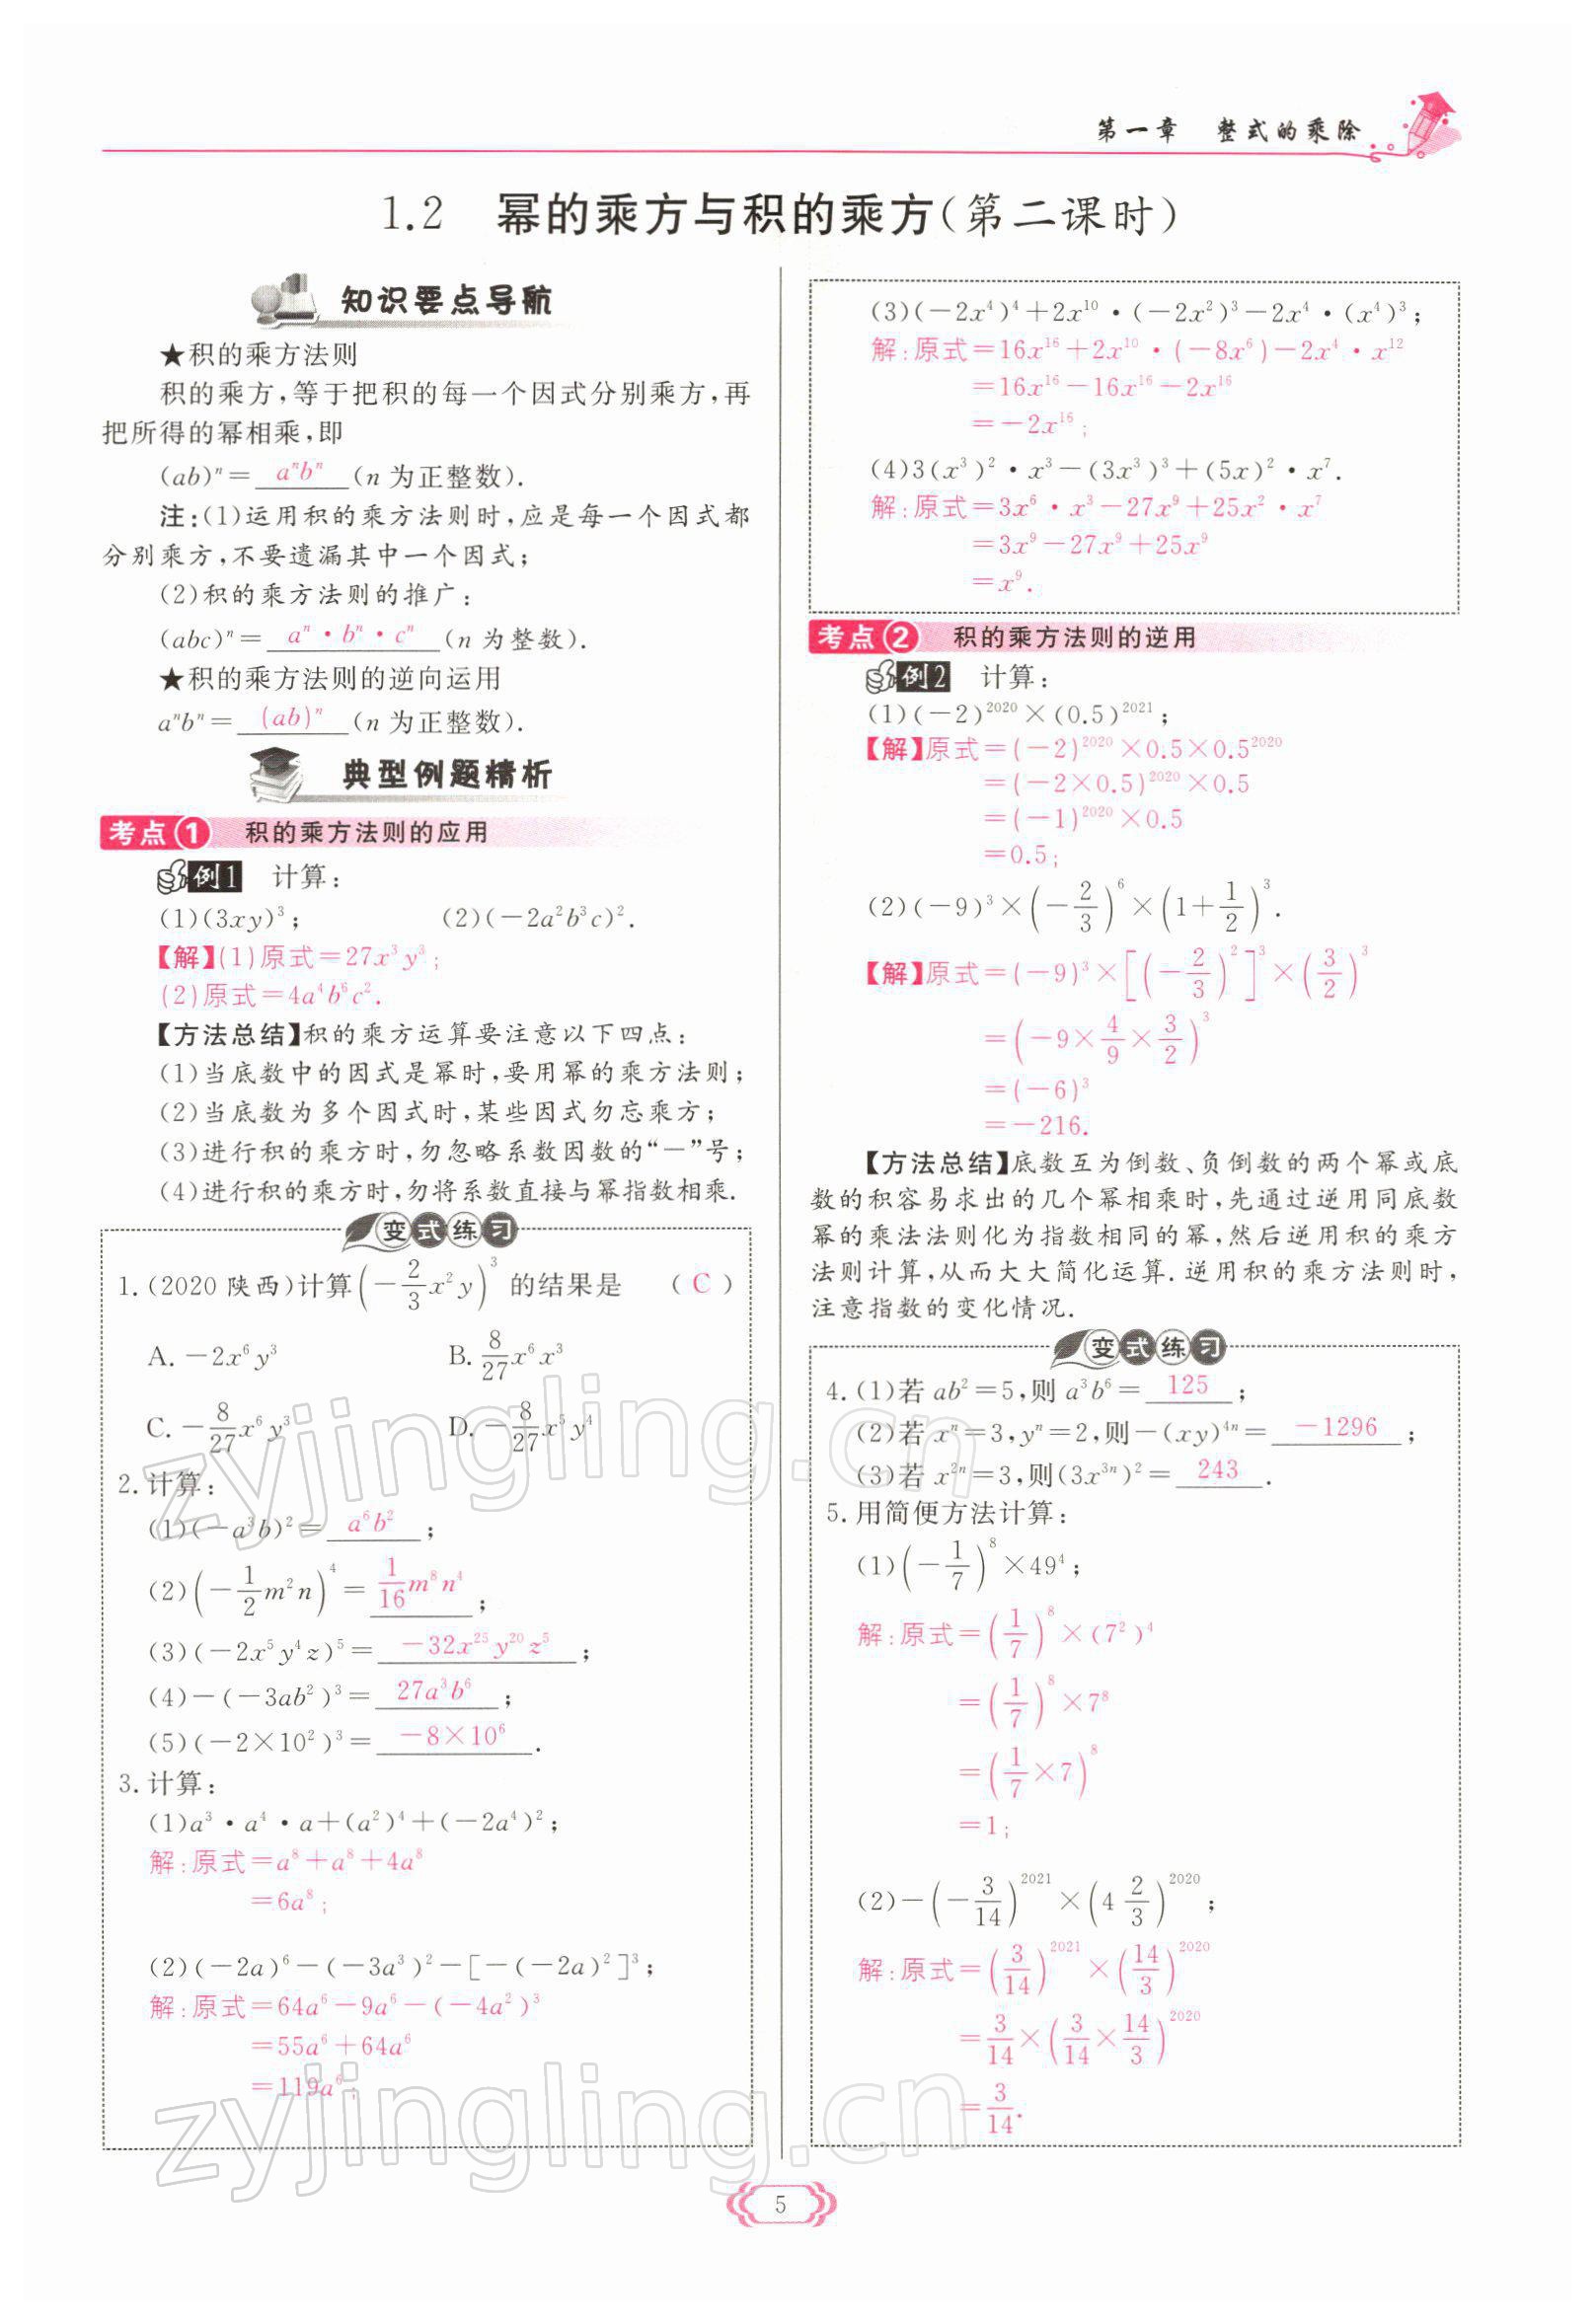 第一章 整式的乘除
1.2 幂的乘方与积的乘方(第二课时)
知识要点导航
★积的乘方法则
积的乘方,等于把积的每一个因式分别乘方,再
把所得的幂相乘,即
(ab)ⁿ= aⁿbⁿ (n 为正整数).
注:(1)运用积的乘方法则时,应是每一个因式都
分别乘方,不要遗漏其中一个因式;
(2)积的乘方法则的推广:
(abc)ⁿ= aⁿ·bⁿ·cⁿ (n 为整数).
★积的乘方法则的逆向运用
aⁿbⁿ= (ab)ⁿ (n 为正整数).
典型例题精析
考点1 积的乘方法则的应用
例1 计算:
(1)(3xy)³; (2)(-2a²b³c)².
【解】(1)原式=27x³y³;
(2)原式=4a⁴b⁶c².
【方法总结】积的乘方运算要注意以下四点:
(1)当底数中的因式是幂时,要用幂的乘方法则;
(2)当底数为多个因式时,某些因式勿忘乘方;
(3)进行积的乘方时,勿忽略系数因数的“-”号;
(4)进行积的乘方时,勿将系数直接与幂指数相乘.
变式练习
1.(2020 陕西)计算(-2/3 x²y)³ 的结果是 ( C )
A.-2x⁶y³ B.8/27 x⁶x³
C.-8/27 x⁶y³ D.-8/27 x⁵y⁴
2.计算:
(1)(-a³b)²= a⁶b² ;
(2)(-1/2 m²n)⁴= 1/16 m⁸n⁴ ;
(3)(-2x⁵y⁴z)⁵= -32x²⁵y²⁰z⁵ ;
(4)-(-3ab²)³= 27a³b⁶ ;
(5)(-2×10²)³= -8×10⁶ .
3.计算:
(1)a³·a⁴·a+(a²)⁴+(-2a⁴)²;
解:原式=a⁸+a⁸+4a⁸
=6a⁸;
(2)(-2a)⁶-(-3a³)²-[-(-2a)²]³;
解:原式=64a⁶-9a⁶-(-4a²)³
=55a⁶+64a⁶
=119a⁶;
(3)(-2x⁴)⁴+2x¹⁰·(-2x²)³-2x⁴·(x⁴)³;
解:原式=16x¹⁶+2x¹⁰·(-8x⁶)-2x⁴·x¹²
=16x¹⁶-16x¹⁶-2x¹⁶
=-2x¹⁶;
(4)3(x³)²·x³-(3x³)³+(5x)²·x⁷.
解:原式=3x⁶·x³-27x⁹+25x²·x⁷
=3x⁹-27x⁹+25x⁹
=x⁹.
考点2 积的乘方法则的逆用
例2 计算:
(1)(-2)²⁰²⁰×(0.5)²⁰²¹;
【解】原式=(-2)²⁰²⁰×0.5×0.5²⁰²⁰
=(-2×0.5)²⁰²⁰×0.5
=(-1)²⁰²⁰×0.5
=0.5;
(2)(-9)³×(-2/3)⁶×(1+1/2)³.
【解】原式=(-9)³×[(-2/3)²]³×(3/2)³
=(-9×4/9×3/2)³
=(-6)³
=-216.
【方法总结】底数互为倒数、负倒数的两个幂或底
数的积容易求出的几个幂相乘时,先通过逆用同底数
幂的乘法法则化为指数相同的幂,然后逆用积的乘方
法则计算,从而大大简化运算.逆用积的乘方法则时,
注意指数的变化情况.
变式练习
4.(1)若 ab²=5,则 a³b⁶= 125 ;
(2)若 xⁿ=3,yⁿ=2,则-(xy)⁴ⁿ= -1296 ;
(3)若 x²ⁿ=3,则(3x³ⁿ)²= 243 .
5.用简便方法计算:
(1)(-1/7)⁸×49⁴;
解:原式=(1/7)⁸×(7²)⁴
=(1/7)⁸×7⁸
=(1/7×7)⁸
=1;
(2)-(-3/14)²⁰²¹×(4 2/3)²⁰²⁰;
解:原式=(3/14)²⁰²¹×(14/3)²⁰²⁰
=3/14×(3/14×14/3)²⁰²⁰
=3/14.
zyjingling.cn
zyjingling.cn
5